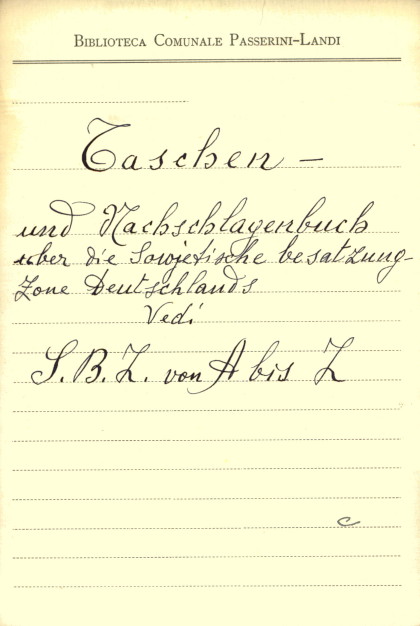 BIBLIOTECA COMUNALE PASSERINI-LANDI
Taschen -
und Nachschlagenbuch
über die Sowjetische besatzung-
zone Deutschlands
Vedi
S.B.Z. von A bis Z
c